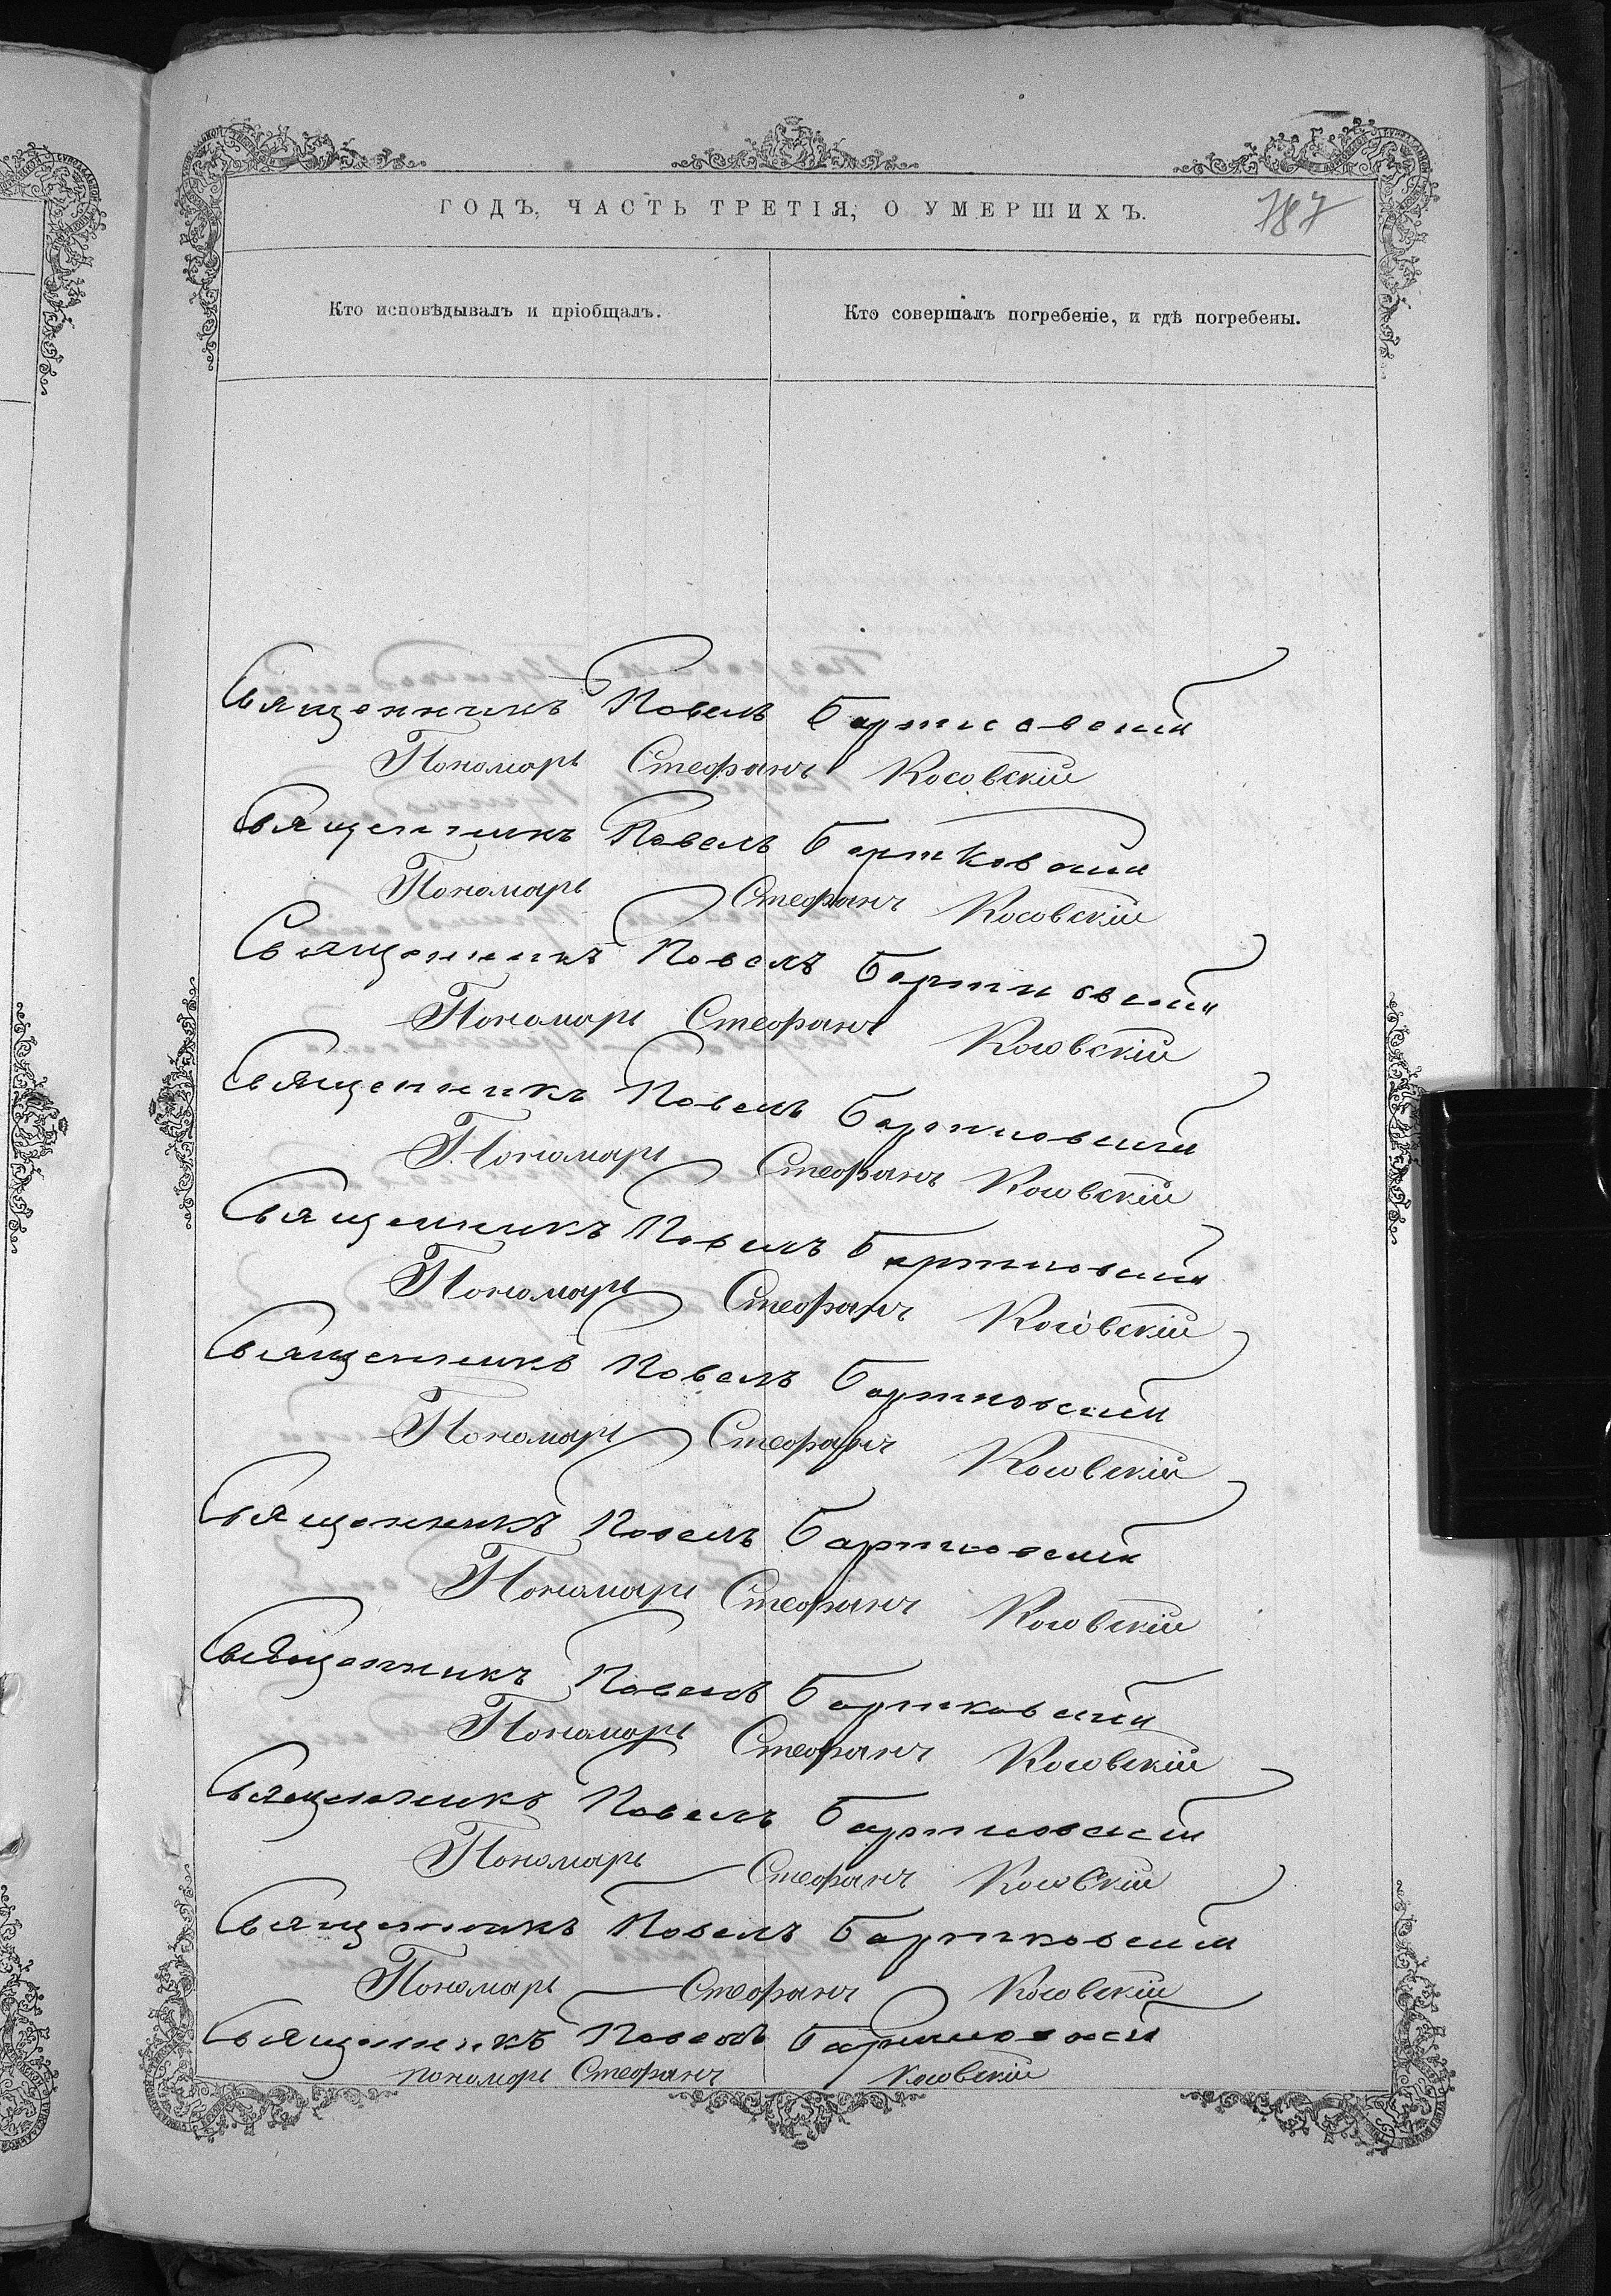 ГОДЪ, ЧАСТЬ ТРЕТІЯ, О УМЕРШИХЪ.
787
Кто исповѣдывалъ и пріобщалъ.
Кто совершалъ погребеніе, и гдѣ погребены.
Священникъ Павелъ Бартковскій
Пономарь Стефанъ Косовскій
Священникъ Павелъ Бартковскій
Пономарь Стефанъ Косовскій
Священникъ Павелъ Бартковскій
Пономарь Стефанъ Косовскій
Священникъ Павелъ Бартковскій
Пономарь Стефанъ Косовскій
Священникъ Павелъ Бартковскій
Пономарь Стефанъ Косовскій
Священникъ Павелъ Бартковскій
Пономарь Стефанъ Косовскій
Священникъ Павелъ Бартковскій
Пономарь Стефанъ Косовскій
Священникъ Павелъ Бартковскій
Пономарь Стефанъ Косовскій
Священникъ Павелъ Бартковскій
Пономарь Стефанъ Косовскій
Священникъ Павелъ Бартковскій
Пономарь Стефанъ Косовскій
Священникъ Павелъ Бартковскій
пономарь Стефанъ Косовскій